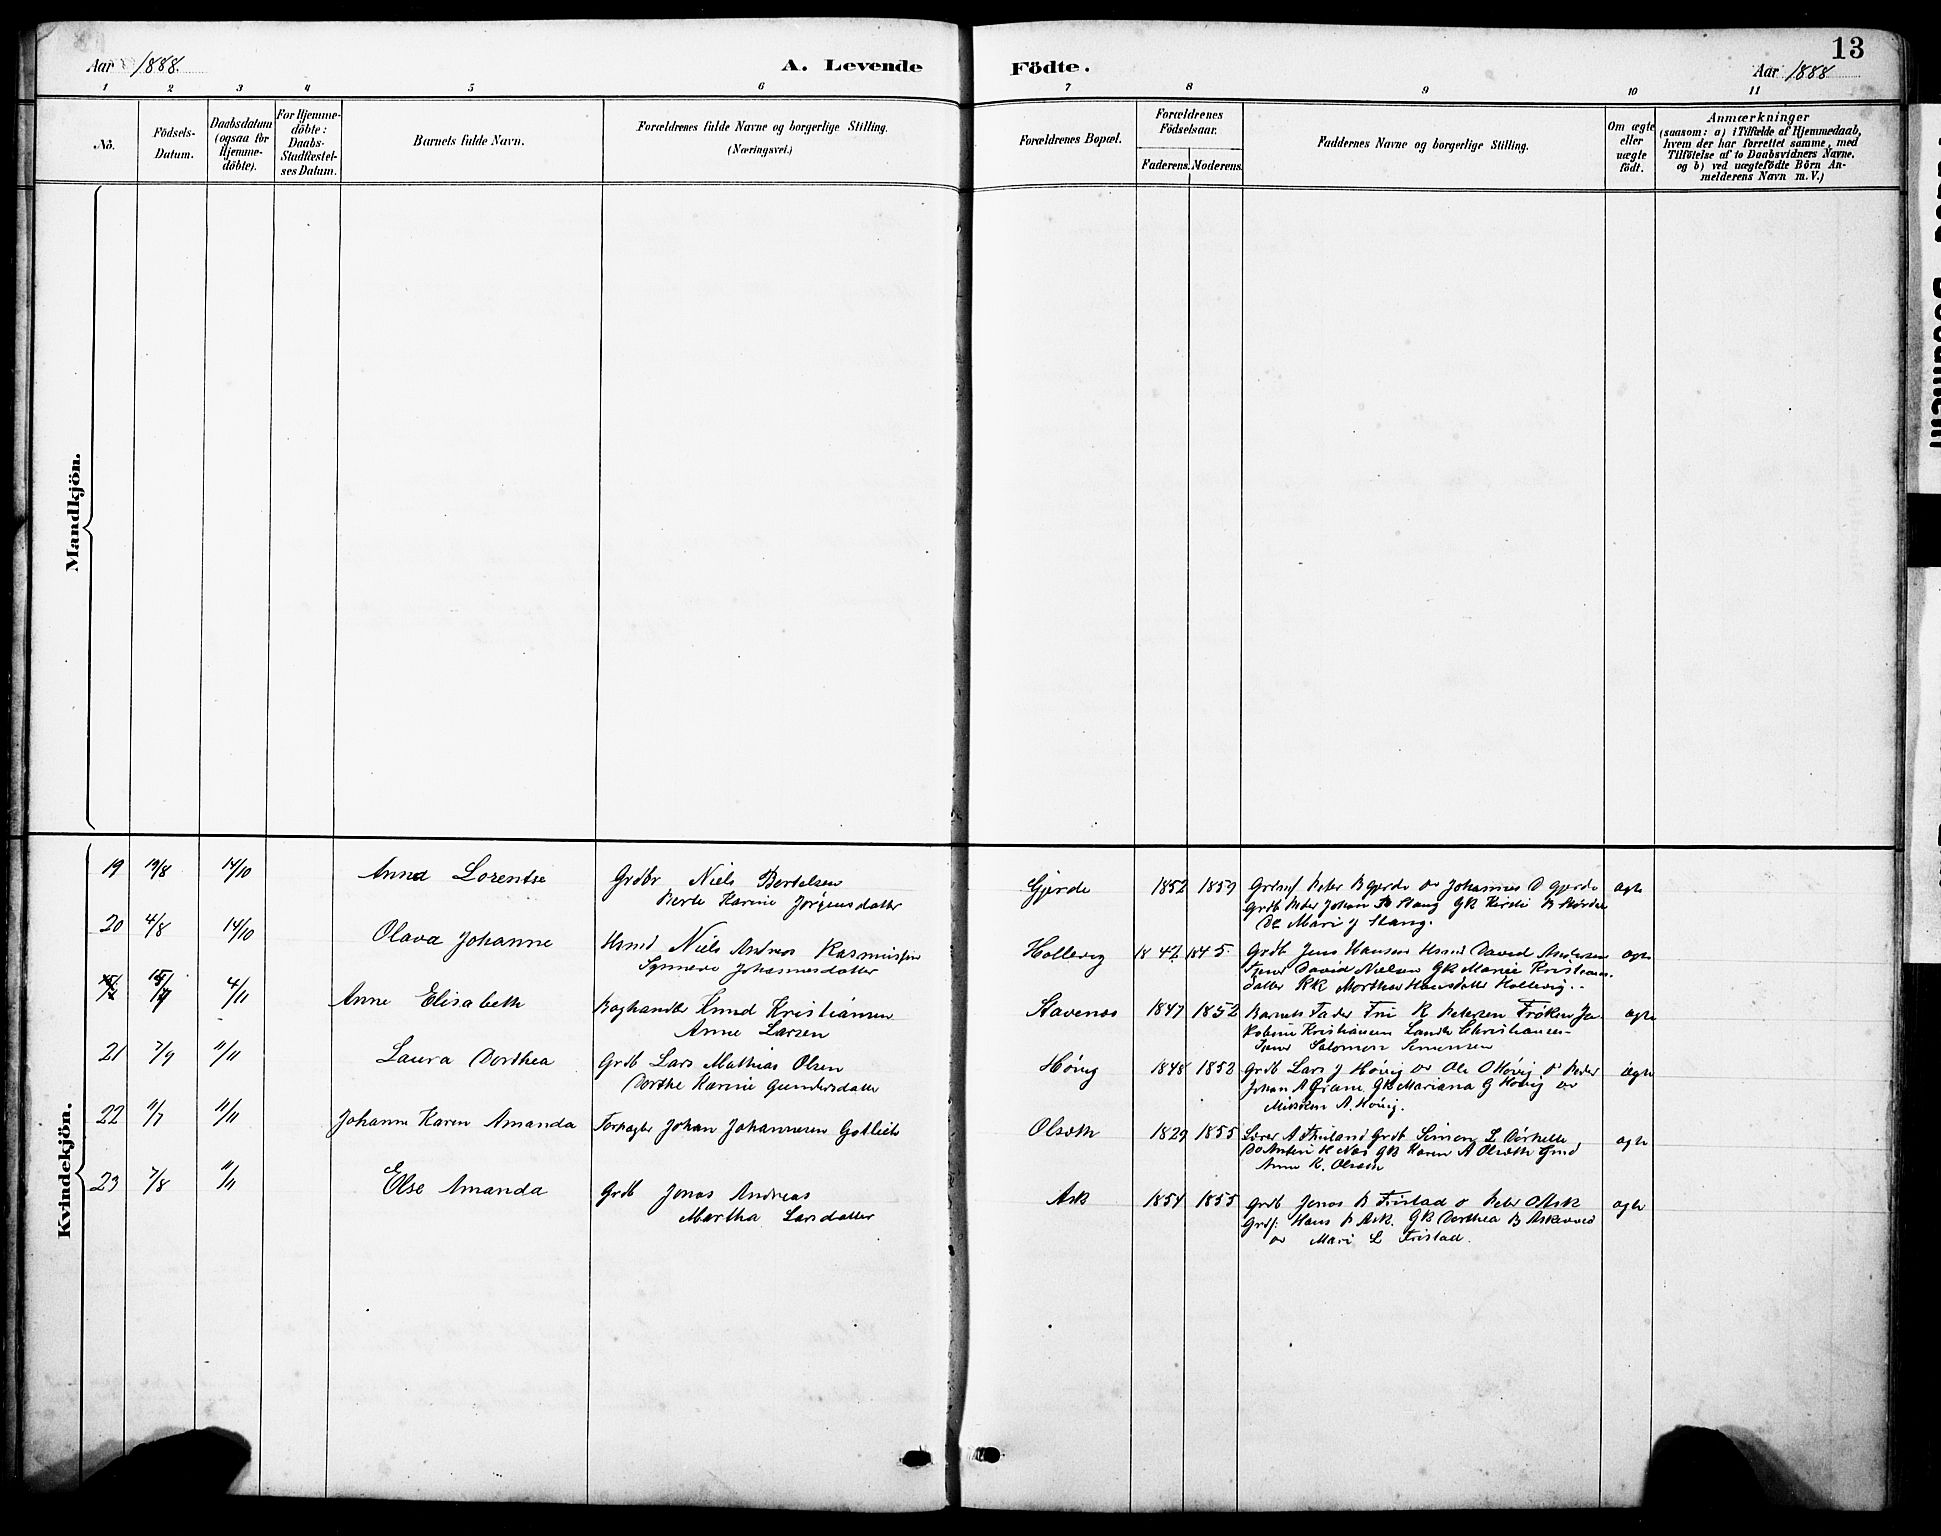 Aar 1888.
A. Levende
Födte.
13
Aar 1888
1 2 3 4 5 6 7 8 9 10 11
No.
Födsels-
Datum.
Daabsdatum
(ogsaa for
Hjemme-
döbte).
For Hjemme-
döbte:
Daabs-
Stadfæstel-
ses Datum.
Barnets fulde Navn.
Forældrenes fulde Navne og borgerlige Stilling.
(Næringsvei.)
Forældrenes Bopæl.
Forældrenes
Födselsaar.
Faderens. Moderens.
Faddernes Navne og borgerlige Stilling.
Om ægte
eller
uægte
födt.
Anmærkninger
(saasom: a) i Tilfælde af Hjemmedaab,
hvem der har forrettet samme, med
Tilföielse af to Daabsvidners Navne,
og b) ved uægtefödte Börn An-
melderens Navn m. V.)
Mandkjön.
Kvindekjön.
19 19/8 14/10 Anna Lorentse Grdbr Niels Bertelsen
Berte Karine Jørgensdatter
Gjerde 1852 1859 Peter B Gjerde Johannes D Gjerde ægte
Grdb Peder Johan
Mari J Hang.
20 4/8 14/10 Olava Johanne Hsmd Niels Andreas Rasmussen
Synneve Johannesdatter
Hollevig 1847 1845 Grdb Jens Hansen Hsmd David Andersen ægte
David Nielsen GK Marie Kristians-
datter Marthea Hansdatter Hollevig.
15/7 4/11 Anne Elisabeth Baghandler Knud Kristiansen
Anne Larsen
Stavenes 1847 1852 Barnets Fader Fru K Petersen Frøken Ja- ægte
kobine Kristiansen Christiansen
Salomon Simensen
21 7/9 11/11 Laura Dorthea Grdb Lars Mathias Olsen
Dorthe Karine Gundersdatter
Høvig 1848 1852 Grdb Lars J Høvig Ole O Høvig Peder ægte
Johan A Gram GK Mariana G Høvig
A. Høvig.
22 11/7 11/11 Johanne Karen Amanda Forpagter Johan Johannesen Gotlieb
Olseth 1829 1855 Lærer A Grdb Simon L ægte
GK Karen A Olseth
Anne K. Olsen
23 7/8 11/11 Else Amanda Grdb Jonas Andreas
Martha Larsdatter
Ask 1854 1855 Grdb Jonas B Fristad Peter O Ask ægte
Hans P Ask. GK Dorthea B
Mari L Fristad.